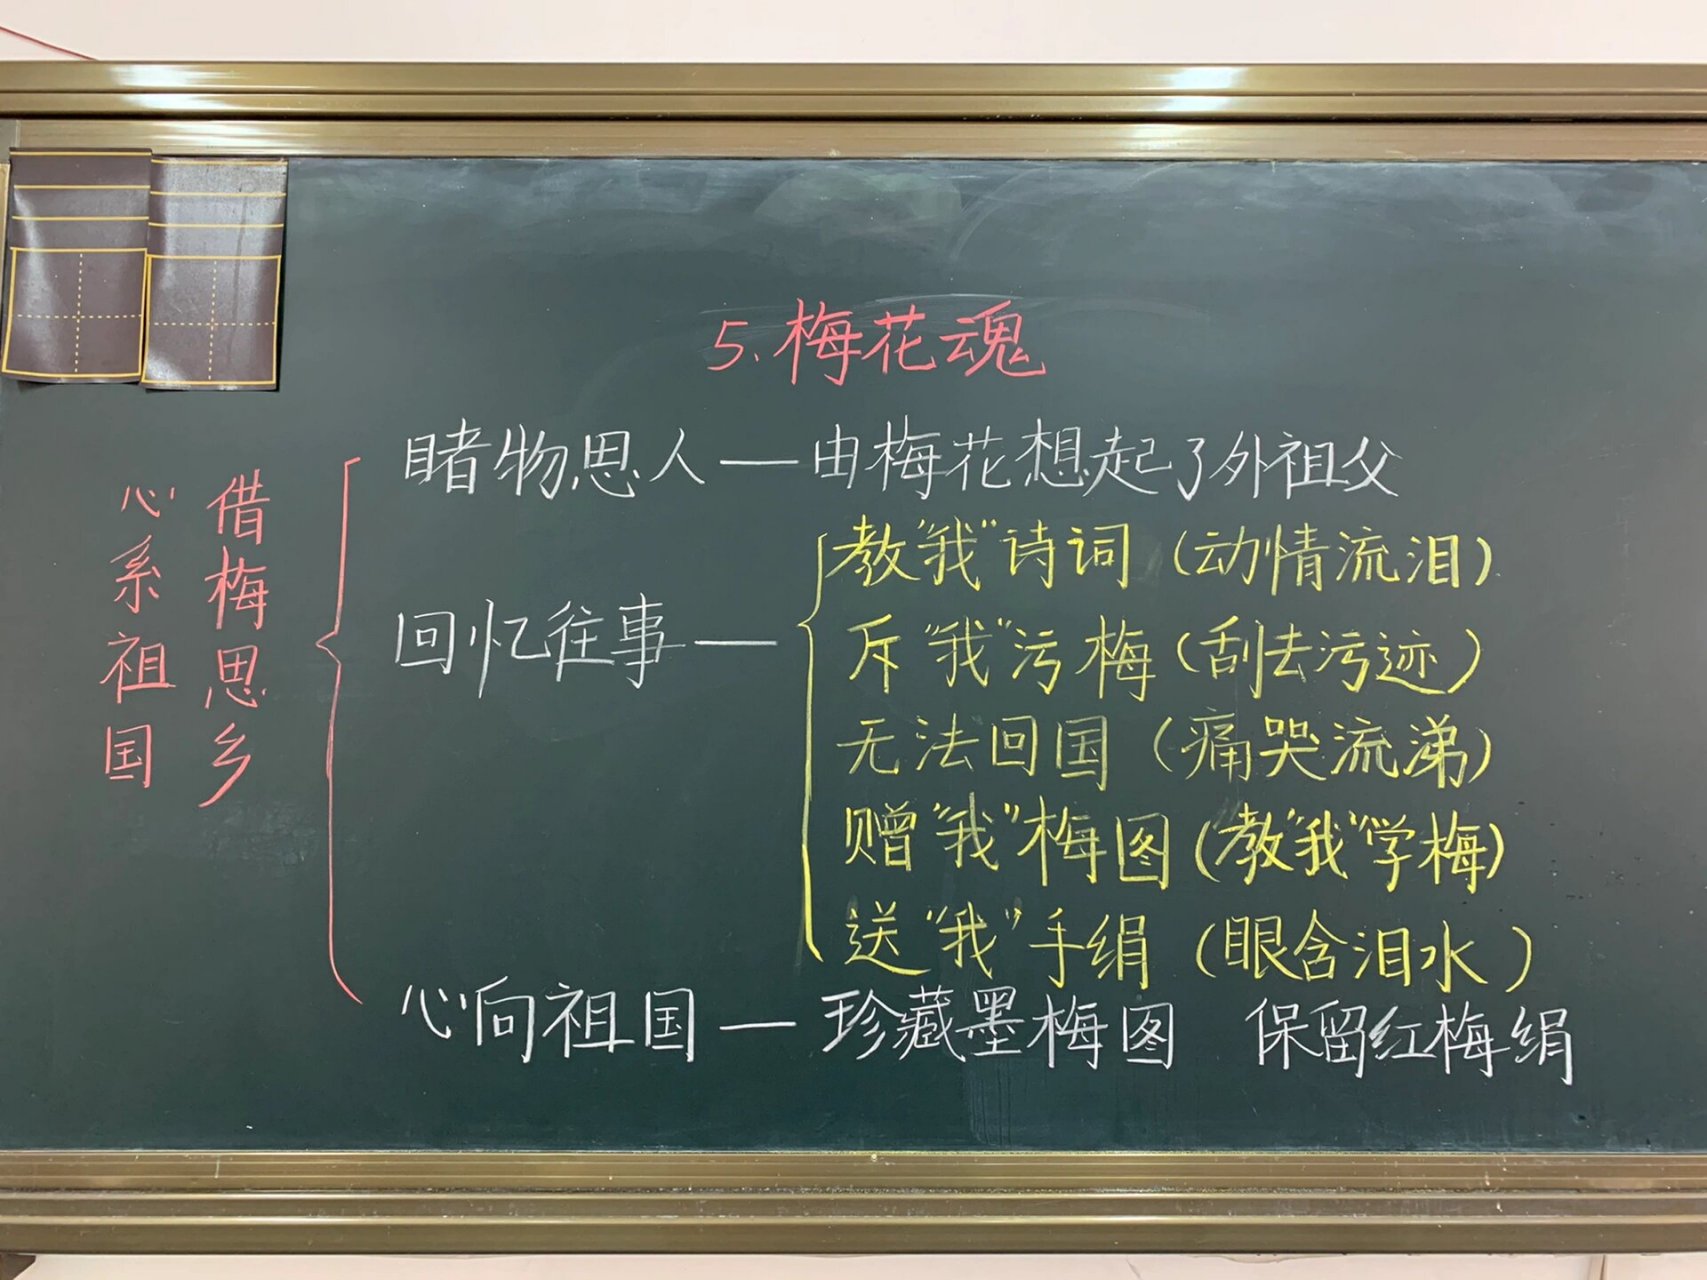 5.梅花魂
借梅思乡
心系祖国
睹物思人——由梅花想起了外祖父
回忆往事——
教“我”诗词(动情流泪)
斥“我”污梅(刮去污迹)
无法回国(痛哭流涕)
赠“我”梅图(教“我”学梅)
送“我”手绢(眼含泪水)
心向祖国——珍藏墨梅图 保留红梅绢